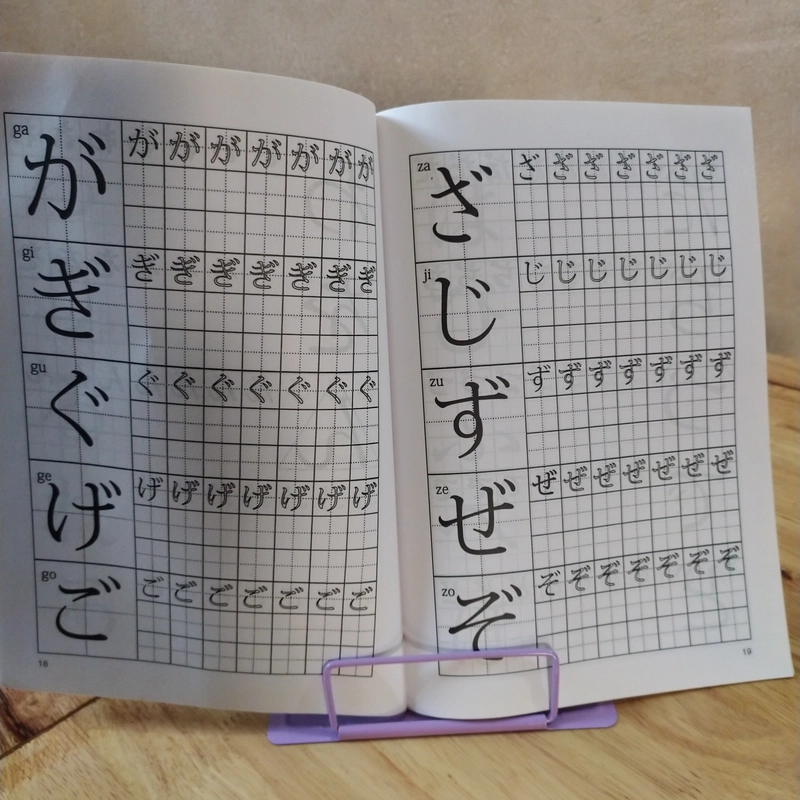 ga
が が が が が が が が
gi
ぎ ぎ ぎ ぎ ぎ ぎ ぎ ぎ
gu
ぐ ぐ ぐ ぐ ぐ ぐ ぐ ぐ
ge
げ げ げ げ げ げ げ げ
go
ご ご ご ご ご ご ご ご
18
za
ざ ざ ざ ざ ざ ざ ざ ざ
ji
じ じ じ じ じ じ じ じ
zu
ず ず ず ず ず ず ず ず
ze
ぜ ぜ ぜ ぜ ぜ ぜ ぜ ぜ
zo
ぞ ぞ ぞ ぞ ぞ ぞ ぞ ぞ
19